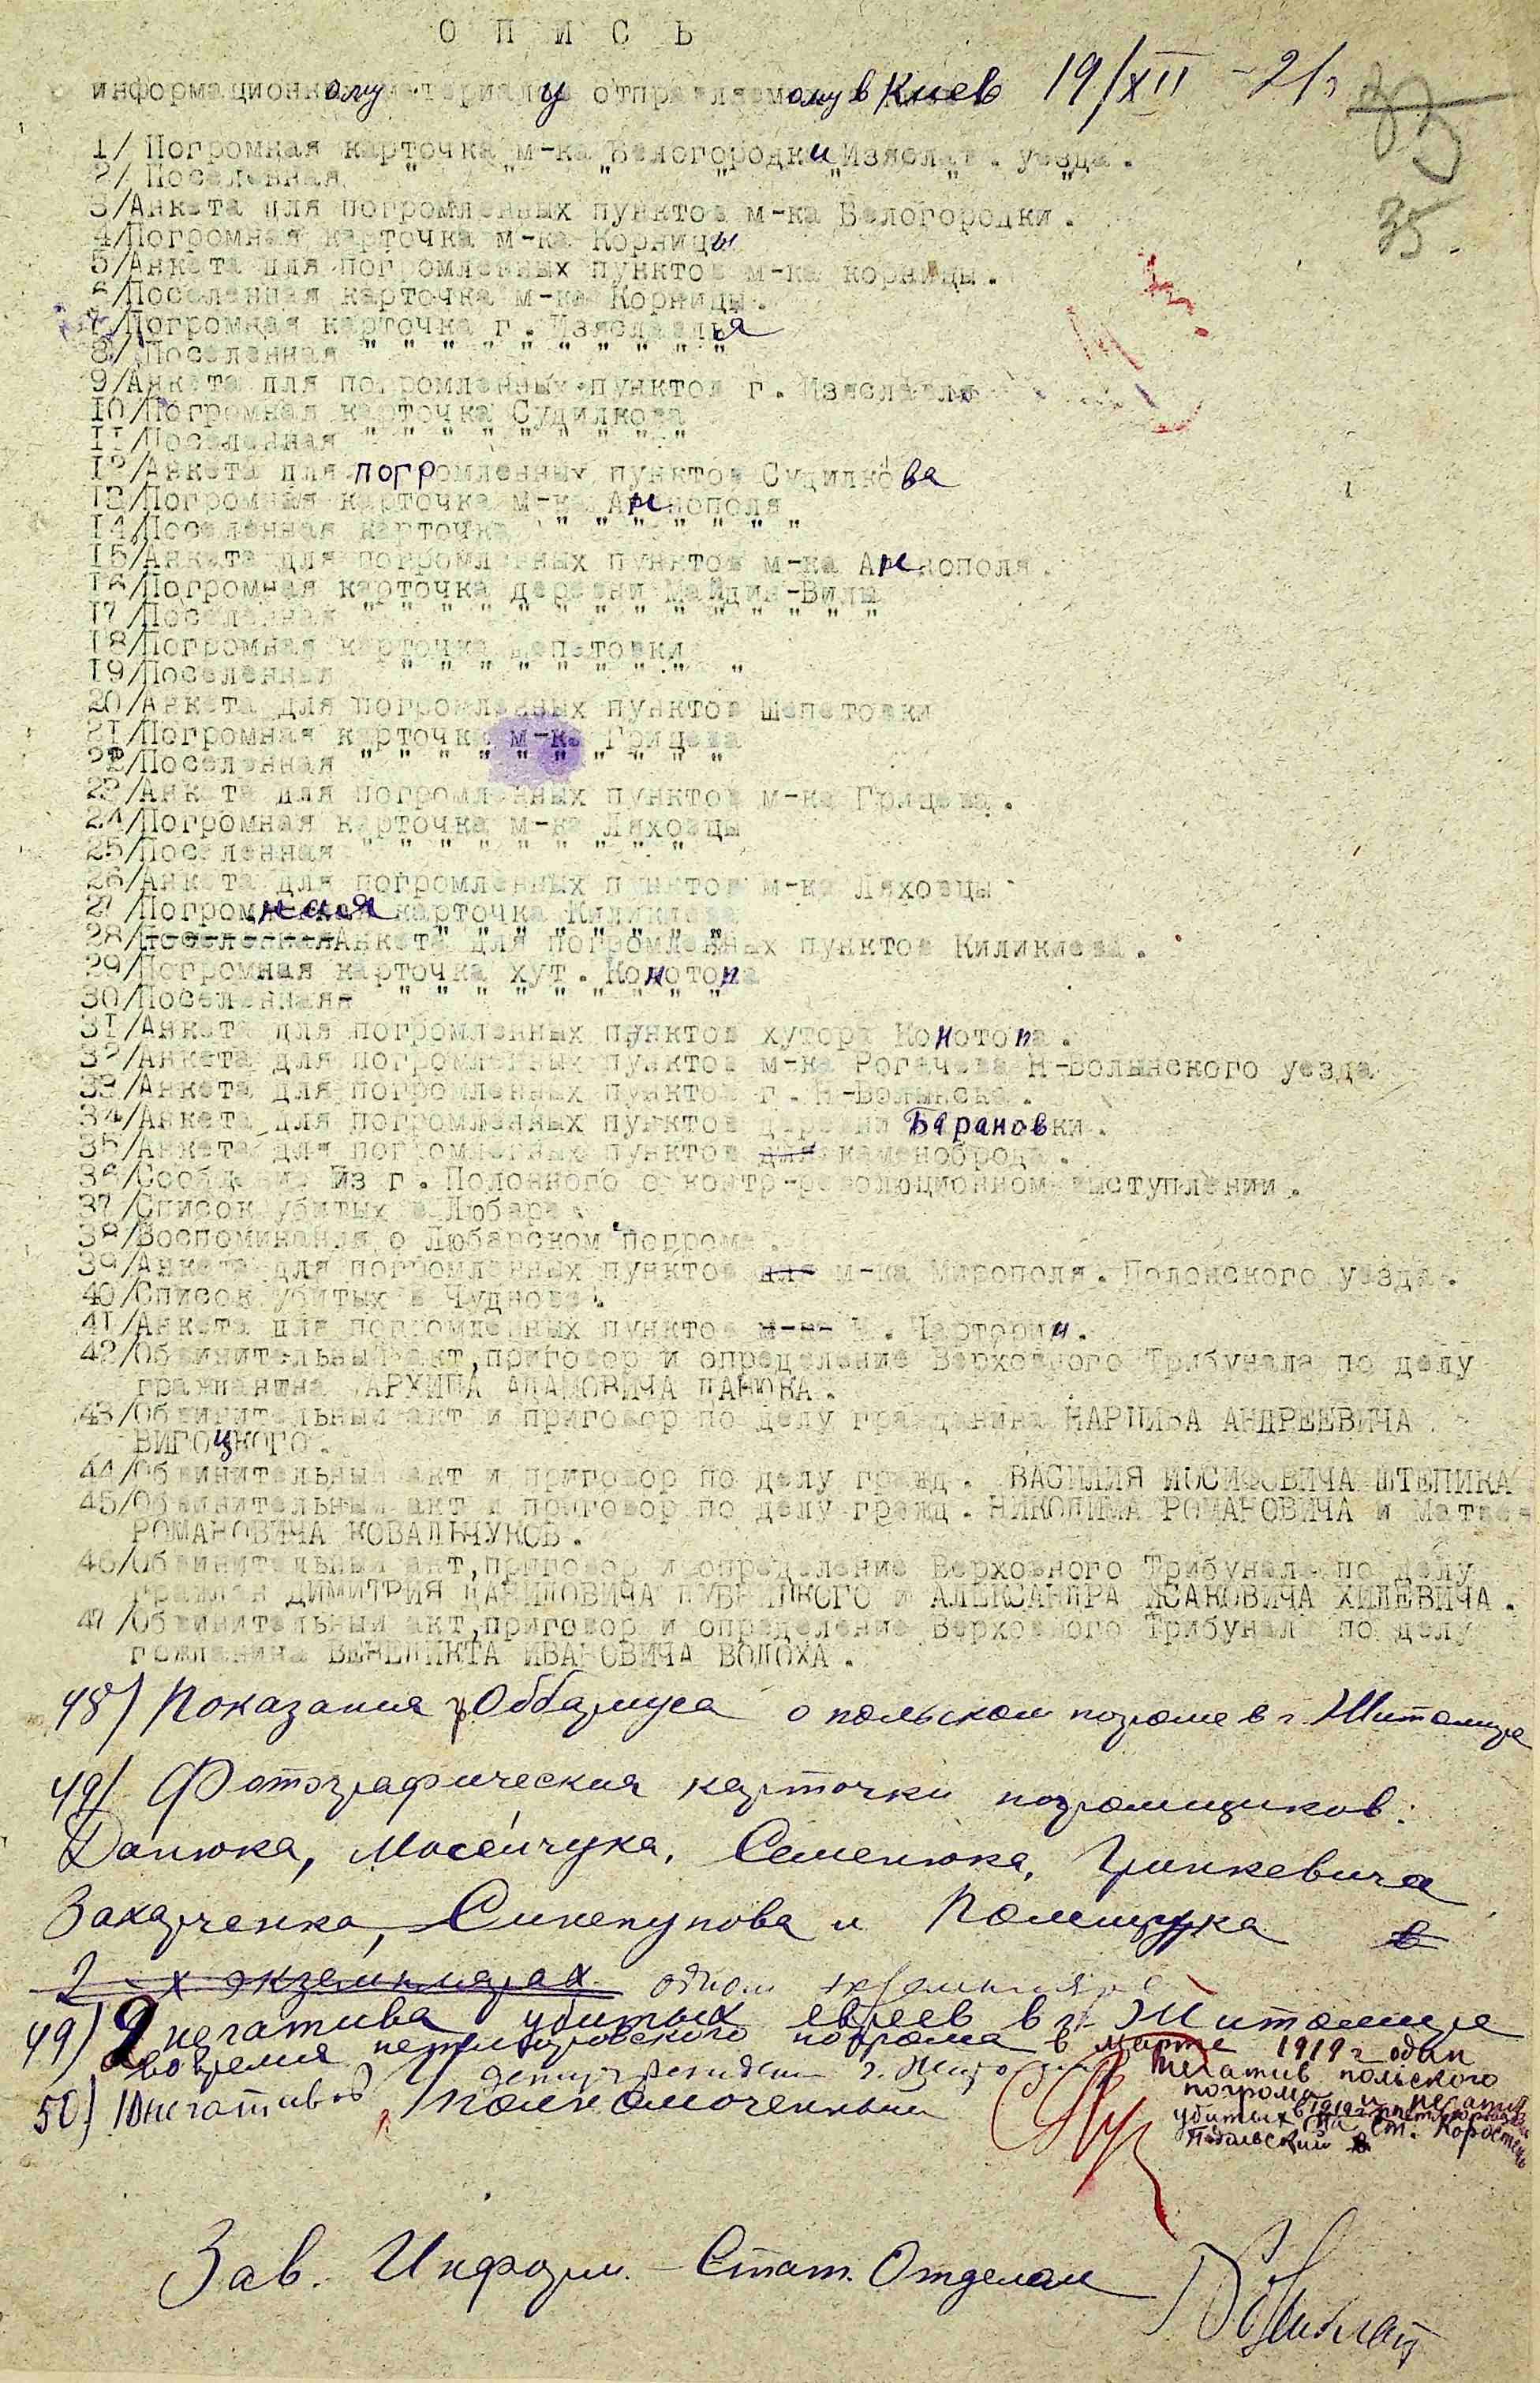 О П И С Ь
информационному материалу отправляемому в Киев 19/XII - 21 г.
33
35.
1/ Погромная карточка м-ка Белогородки Изяслав. уезда.
2/ Поселенная " " " " " "
3/Анкета для погромленных пунктов м-ка Белогородки.
4/Погромная карточка м-ка Корницы
5/Анкета для погромленных пунктов м-ка корницы.
6/Поселенная карточка м-ка Корницы.
7/Погромная карточка г. Изяславля
8/ Поселенная " " " " " " " " " "
9/Анкета для погромленных пунктов г. Изяславля
10/Погромная карточка Судилкова
11/Поселенная " " " " " " " " "
12/Анкета для погромленных пунктов Судилкова
13/Погромная карточка м-ка Аннополя
14/Поселенная карточка " " " " " " "
15/Анкета для погромленных пунктов м-ка Аннополя.
16/Погромная карточка деревни Майдан-Вилы
17/Поселенная " " " " " " " " " " " " " "
18/Погромная карточка Шепетовки
19/Поселенная " " " " " " " " "
20/Анкета для погромленных пунктов Шепетовки
21/Погромная карточка м-ка Грицева
22/Поселенная " " " " " " " " " "
23/Анкета для погромленных пунктов м-ка Грицева.
24/Погромная карточка м-ка Ляховцы
25/Поселенная " " " " " " " " "
26/Анкета для погромленных пунктов м-ка Ляховцы
27/Погромная карточка Киликиева
28/Поселенная Анкета для погромленных пунктов Киликиева.
29/Погромная карточка хут. Конотопа
30/Поселенная " " " " " " " " "
31/Анкета для погромленных пунктов хутора Конотопа.
32/Анкета для погромленных пунктов м-ка Рогачева Н-Волынского уезда
33/Анкета для погромленных пунктов г. Н-Волынска.
34/Анкета для погромленных пунктов деревни Барановки.
35/Анкета для погромленных пунктов для каменоброда.
36/Сообщение Из г. Полонного о контр-революционном выступлении.
37/Список убитых в Любаре.
38/Воспоминания о Любарском погроме.
39/Анкета для погромленных пунктов для м-ка Мирополя. Полонского уезда.
40/Список убитых в Чуднове.
41/Анкета для погромленных пунктов м-ка Н. Чартории.
42/Обвинительный акт,приговор и определение Верховного Трибунала по делу
гражданина АРХИПА АДАМОВИЧА ДАНЮКА.
43/Обвинительный акт и приговор по делу гражданина НАРЦИЗА АНДРЕЕВИЧА
ВИГОЦКОГО.
44/Обвинительный акт и приговор по делу гражд. ВАСИЛИЯ ИОСИФОВИЧА ШТЕПИКА
45/Обвинительный акт и приговор по делу гражд. НИКОДИМА РОМАНОВИЧА и Матвея
РОМАНОВИЧА КОВАЛЬЧУКОВ.
46/Обвинительный акт,приговор и определение Верховного Трибунала по делу
граждан ДИМИТРИЯ ДАНИЛОВИЧА ДУБНИЦКОГО и АЛЕКСАНДРА ИСАКОВИЧА ХИЛЕВИЧА.
47/Обвинительный акт,приговор и определение Верховного Трибунала по делу
гражданина ВЕНЕДИКТА ИВАНОВИЧА ВОЛОХА.
48) Показания о польском погроме в г. Житомире
49) Фотографические карточки погромщиков:
Данюка, Мосейчука, Семенюка, Гринкевича
Захарченка, Синепупова и Полищука в
2-х экземплярах одном экземпляре
49) 9 негатива убитых евреев в г. Житомире
во время петлюровского погрома в марте 1919 г один
негатив польского
погрома и негатив
убитых в 1919 г.
на ст. Коростень
Подольский в
50) 10 негативов
Уполномоченный
Зав. Информ. - Стат. Отделом